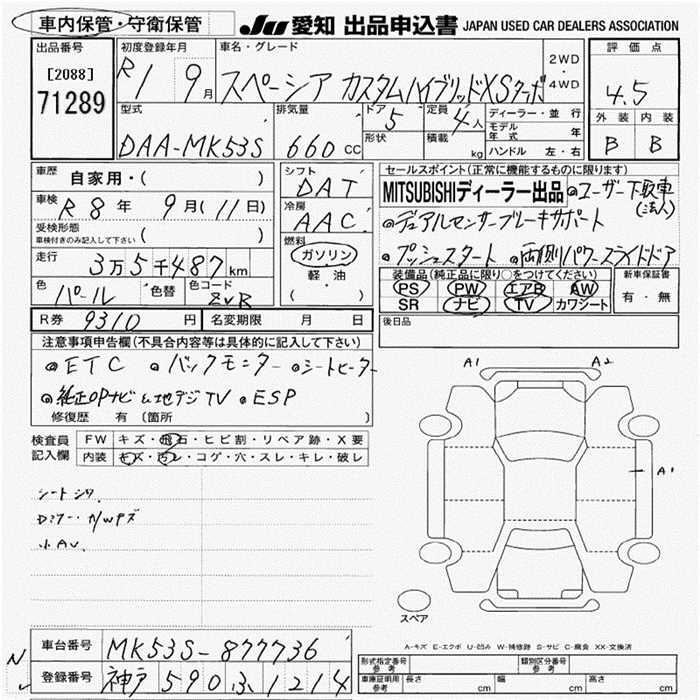 車内保管・守衛保管 JU 愛知 出品申込書 JAPAN USED CAR DEALERS ASSOCIATION
出品番号
[2088]
71289
初度登録年月
R1 9月
車名・グレード
スペーシア カスタムハイブリッドXSターボ
2WD
・
4WD
評価点
4.5
外装 内装
B B
型式
DAA-MK53S
排気量
660 CC
ドア 5
形状
定員 4人
積載 kg
ディーラー・並行
モデル年式 年
ハンドル 左・右
車歴
自家用・( )
車検
R8年 9月(11日)
受検形態
車検付きのみ記入して下さい ( )
走行
3万5千487km
色
パール
色替
色コード
ZVR
シフト
DAT
冷房
AAC
燃料
ガソリン
軽・油
( )
セールスポイント(正常に機能するものに限ります)
MITSUBISHIディーラー出品 ◎ユーザー下取車
(法人)
◎デュアルセンサーブレーキサポート
◎プッシュスタート ◎両側パワースライドドア
装備品(純正品に限り○をつけてください)
PS PW エアB AW
SR ナビ TV カワシート
新車保証書
有・無
後日品
R券 9310円
名変期限 月 日
注意事項申告欄(不具合内容等は具体的に記入して下さい)
◎ETC ◎バックモニター ◎シートヒーター
◎純正OPナビ&地デジTV ◎ESP
修復歴 有 〔箇所 〕
検査員記入欄
FW キズ・飛石・ヒビ割・リペア跡・X要
内装 キズ・汚レ・コゲ・穴・スレ・キレ・破レ
シートシワ
小AU
A1 A2
A1
スペア
A-キズ E-エクボ U-凹み W-補修跡 S-サビ C-腐食 XX-交換済
車台番号 MK53S-877736
登録番号 神戸 590 ふ 1214
形式指定番号
参考
類別区分番号
参考
車庫証明用
参考
長さ cm 幅 cm 高さ cm